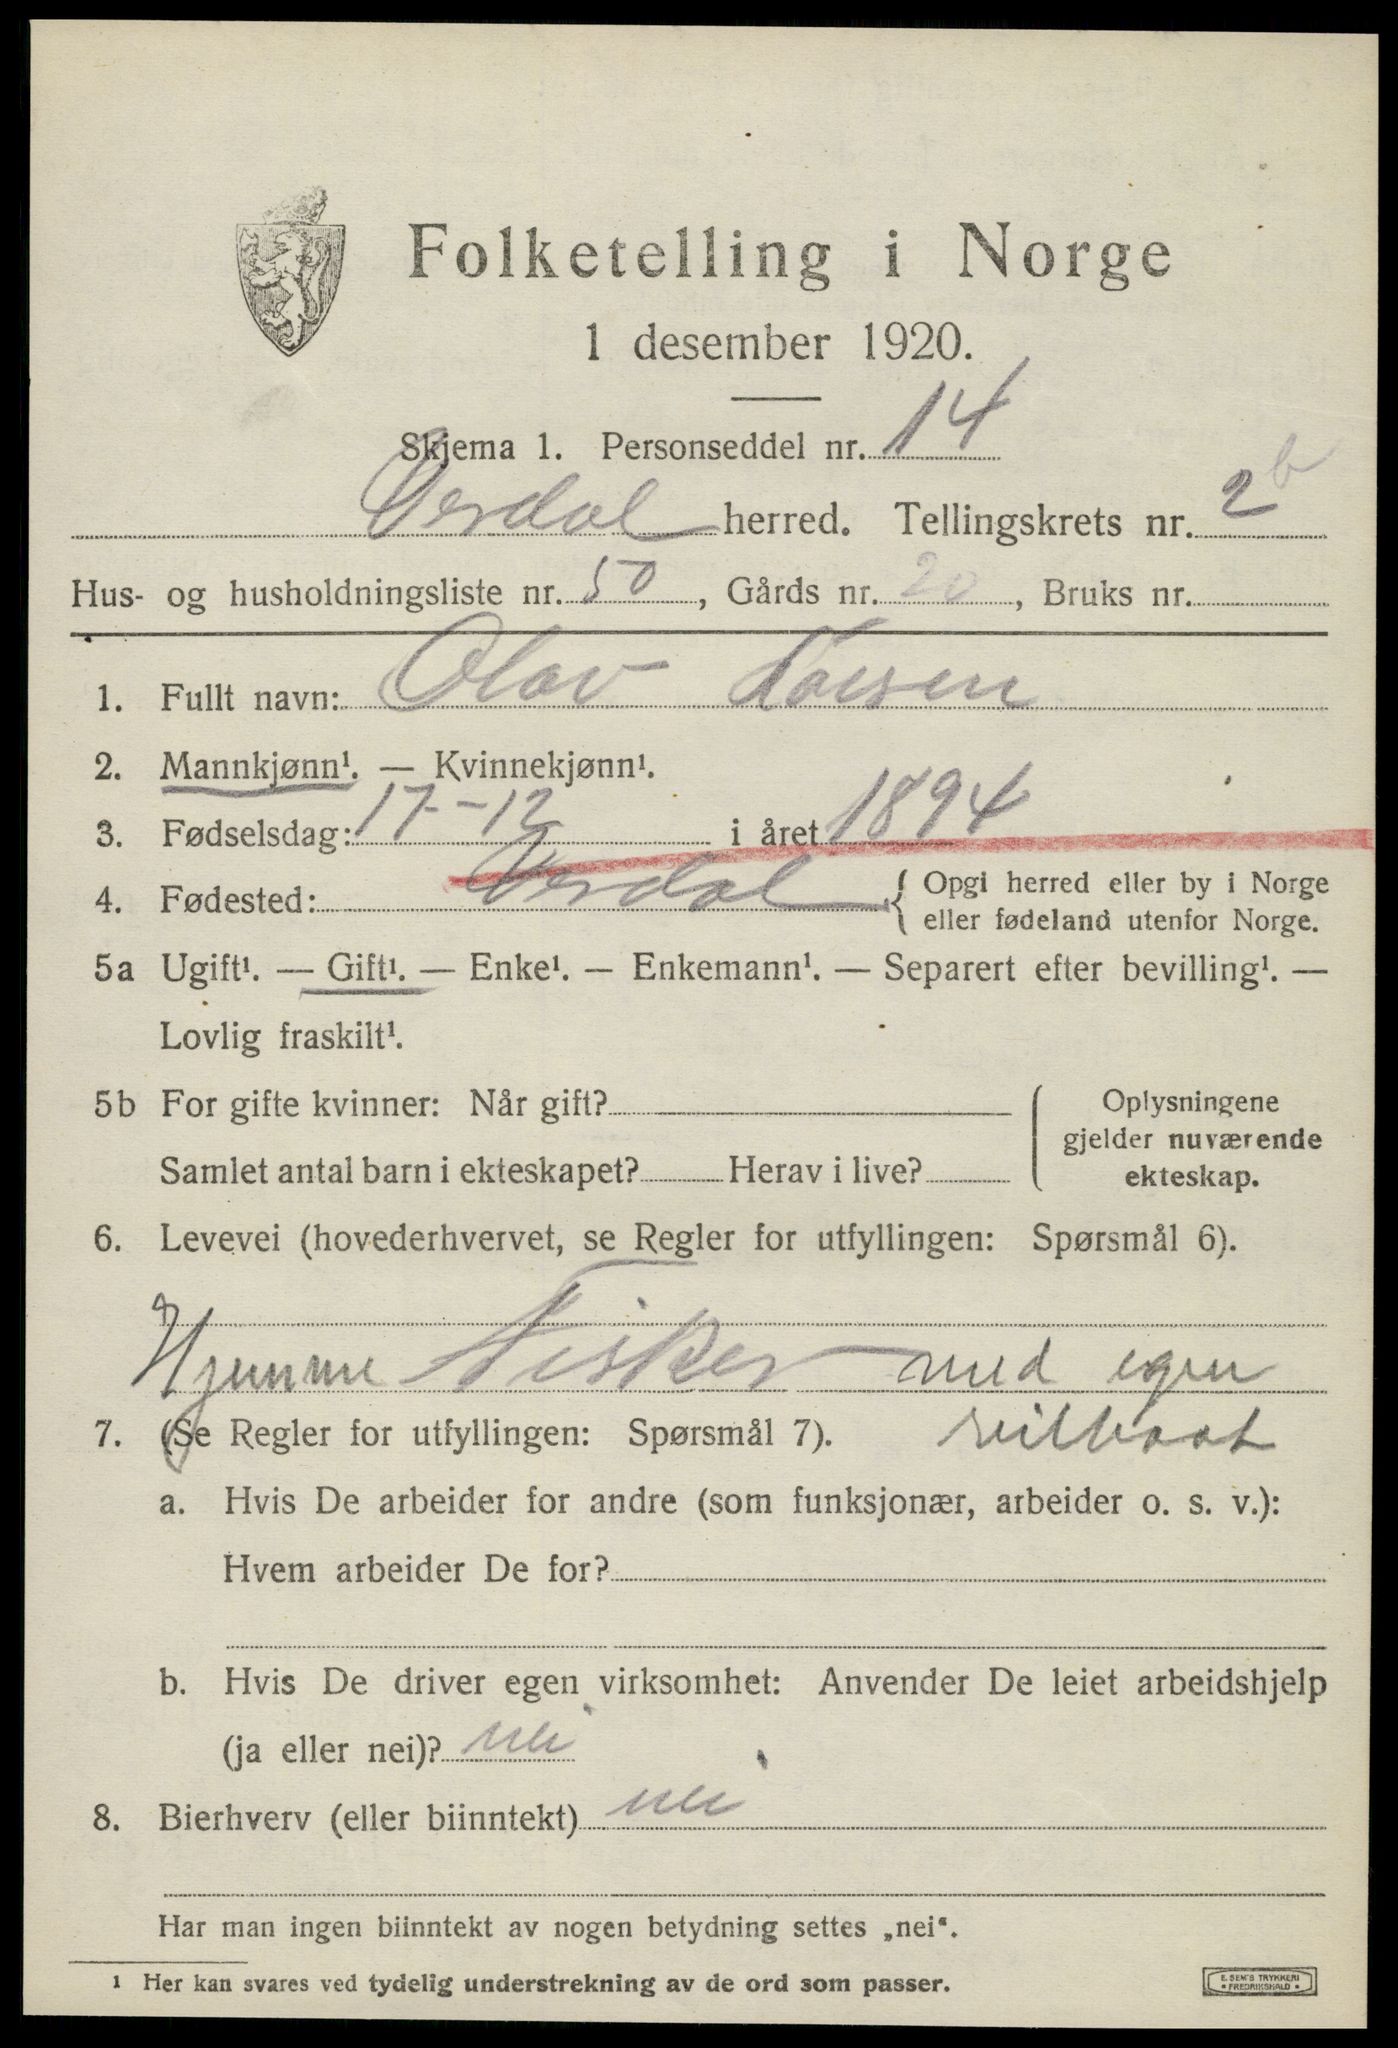 Folketelling i Norge
1 desember 1920.
Skjema 1. Personseddel nr. 14
Verdal herred. Tellingskrets nr. 2 b
Hus- og husholdningsliste nr. 50, Gårds nr. 20, Bruks nr.
1. Fullt navn: Olav
2. Mannkjønn¹. — Kvinnekjønn¹.
3. Fødselsdag: 17 - 12 i året 1894
4. Fødested: Verdal { Opgi herred eller by i Norge
eller fødeland utenfor Norge.
5a Ugift¹. — Gift¹. — Enke¹. — Enkemann¹. — Separert efter bevilling¹. —
Lovlig fraskilt¹.
5b For gifte kvinner: Når gift? Oplysningene
gjelder nuværende
Samlet antal barn i ekteskapet? Herav i live? ekteskap.
6. Levevei (hovederhvervet, se Regler for utfyllingen: Spørsmål 6).
Hjemme Fisker med egen
7. (Se Regler for utfyllingen: Spørsmål 7). seilbaat
a. Hvis De arbeider for andre (som funksjonær, arbeider o. s. v.):
Hvem arbeider De for?
b. Hvis De driver egen virksomhet: Anvender De leiet arbeidshjelp
(ja eller nei)? nei
8. Bierhverv (eller biinntekt) nei
Har man ingen biinntekt av nogen betydning settes „nei“.
¹ Her kan svares ved tydelig understrekning av de ord som passer.
E. SEM'S TRYKKERI
• FREDRIKSHALD •